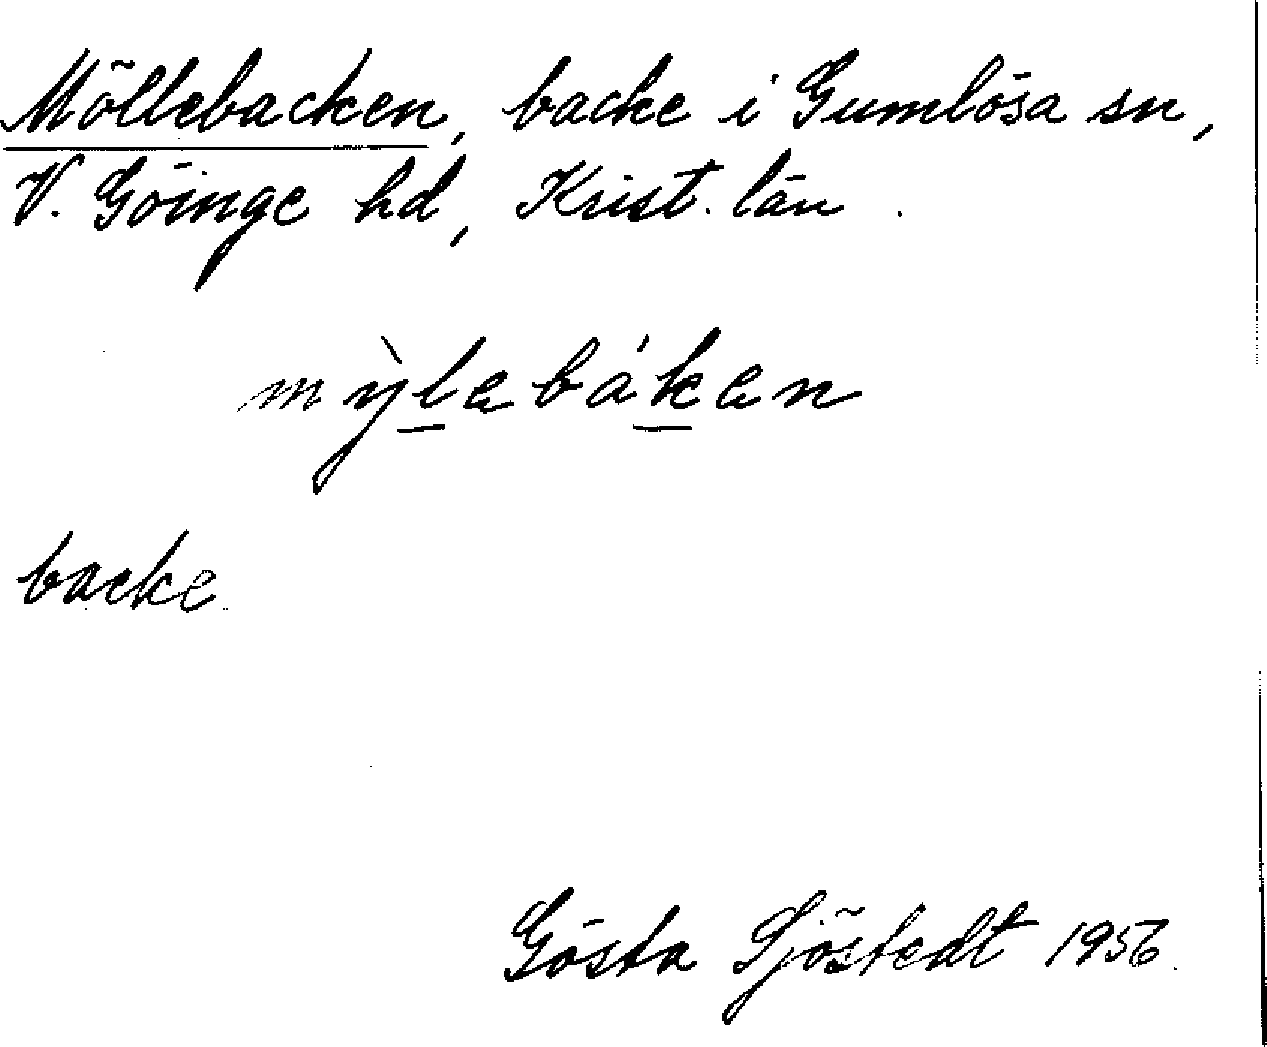 Möllebacken, backe i Gumlösa sn,
V. Göinge hd, Krist. län.
mỳlebáken
backe.
Gösta Sjöstedt 1956.